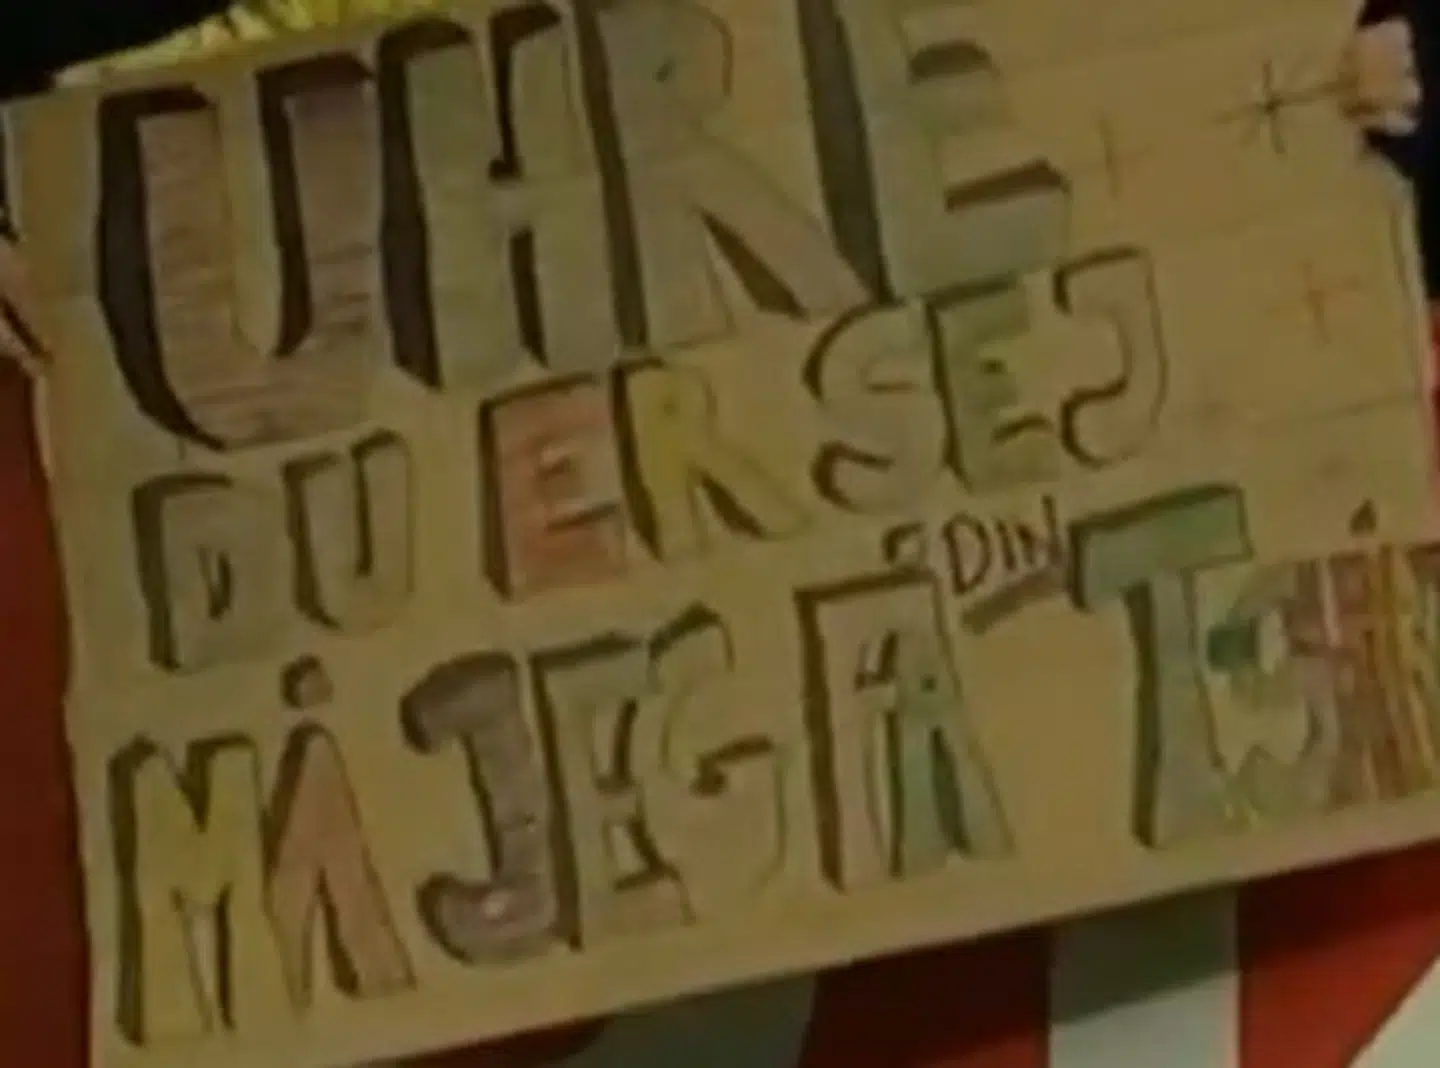 UHRE
DU ER SEJ
MÅ JEG FÅ DIN